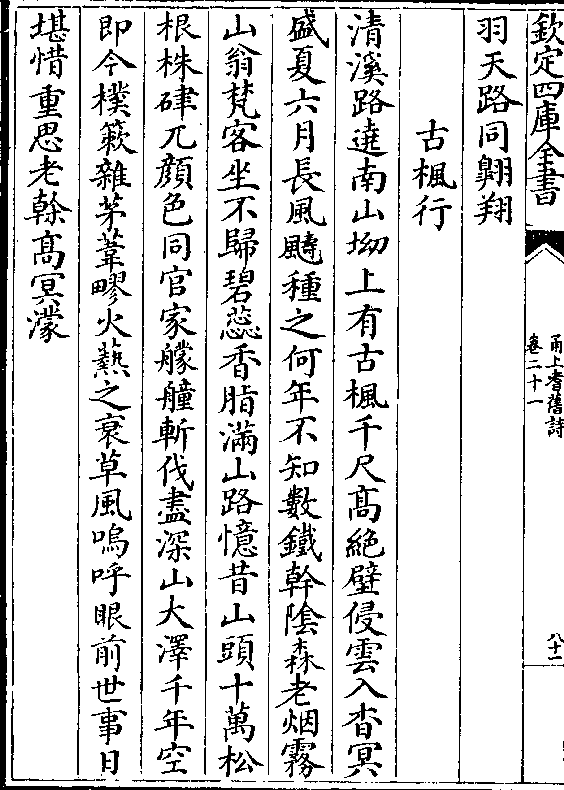 欽定四庫全書
甬上耆舊詩
卷二十一
八十一
羽天路同翺翔
古楓行
清溪路遶南山坳上有古楓千尺髙絶壁侵雲入杳冥
盛夏六月長風飀種之何年不知數鐵幹陰森老烟霧
山翁梵客坐不歸碧蕊香脂滿山路憶昔山頭十萬松
根株硉兀顔色同官家艨艟斬伐盡深山大澤千年空
即今樸簌雜茅葦疁火爇之衰草風嗚呼眼前世事日
堪惜重思老榦髙冥濛